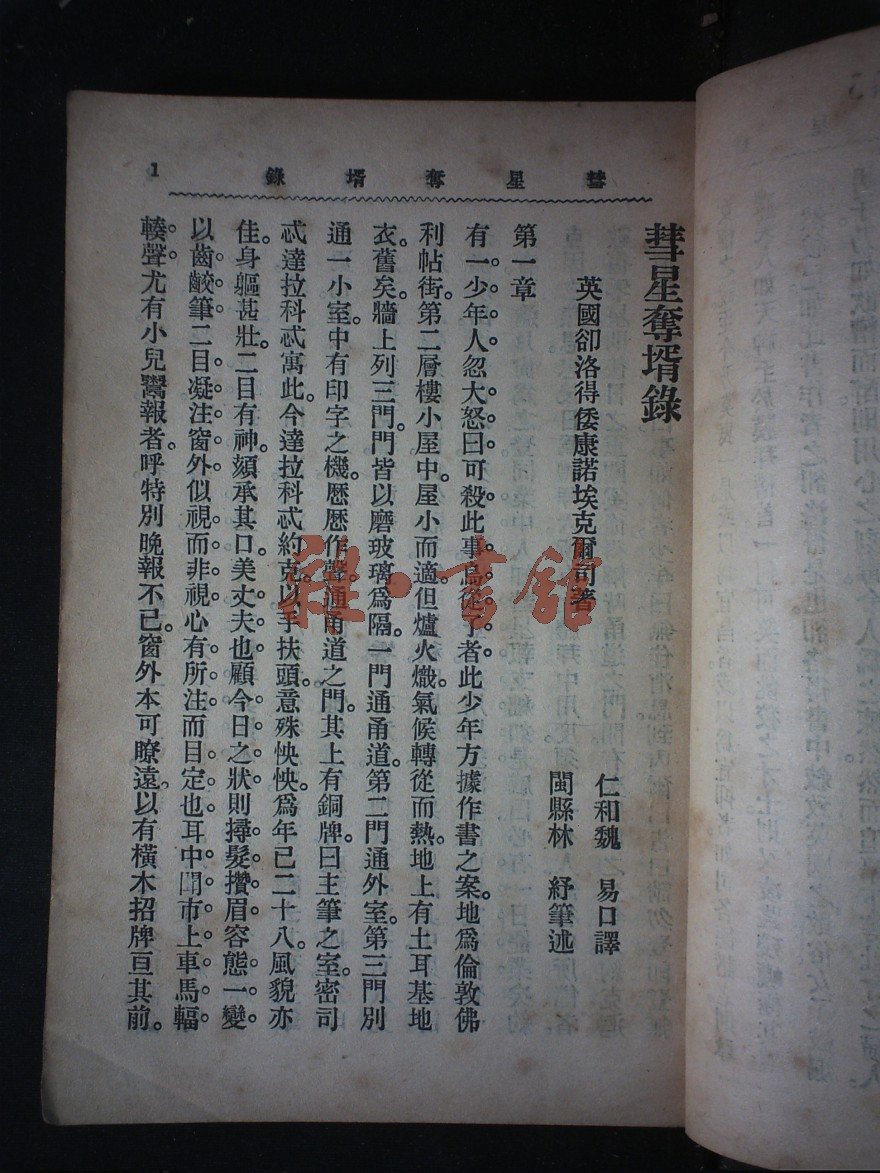 彗星奪壻錄
1
彗星奪壻錄
英國卻洛得倭康諾埃克爾司著
仁和魏　易口譯
閩縣林　紓筆述
第一章
有一少年人忽大怒曰可殺此事烏從了者此少年方據作書之案地爲倫敦佛
利帖街第二層樓小屋中屋小而適但爐火熾氣候轉從而熱地上有土耳基地
衣舊矣。牆上列三門。門皆以磨玻璃爲隔。一門通甬道。第二門通外室。第三門別
通一小室。中有印字之機。歷歷作聲。通甬道之門。其上有銅牌。曰主筆之室。密司
忒達拉科忒寓此。今達拉科忒約克。以手扶頭。意殊怏怏。爲年已二十八。風貌亦
佳。身軀甚壯。二目有神。頦承其口。美丈夫也。顧今日之狀。則撏髮攢眉。容態一變。
以齒齩筆。二目凝注窗外。似視而非視。心有所注而目定也。耳中聞市上車馬輻
輳聲。尤有小兒鬻報者。呼特別晚報不已。窗外本可瞭遠。以有橫木招牌亘其前。
雜·書館